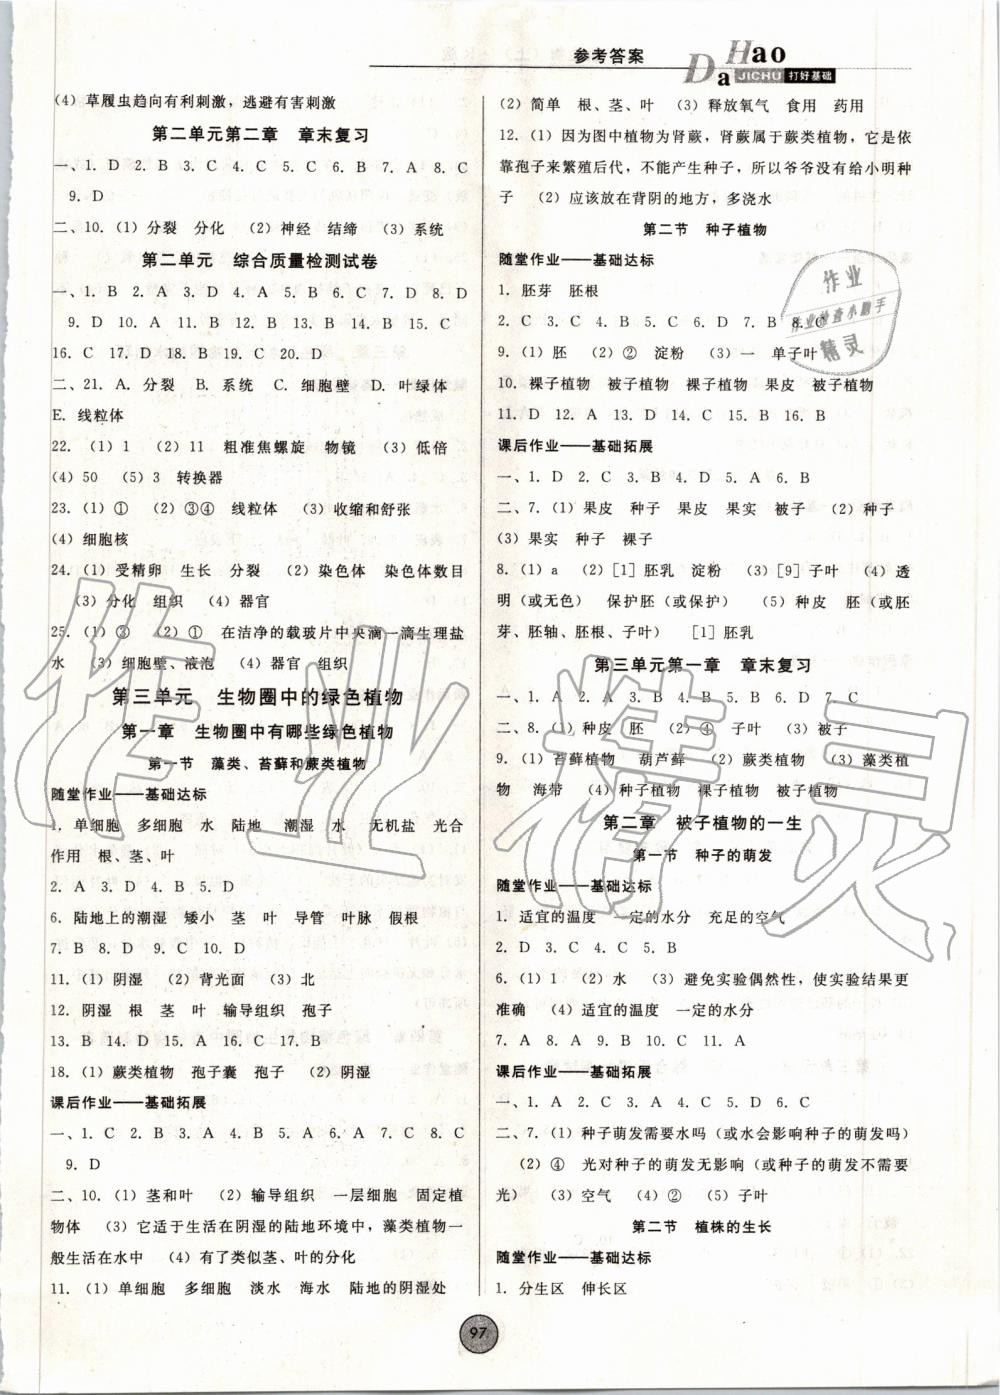 参考答案
Da Hao
JICHU 打好基础
(4) 草履虫趋向有利刺激，逃避有害刺激
第二单元第二章　章末复习
一、1. D　2. B　3. C　4. C　5. C　6. B　7. A　8. C
9. D
二、10. (1) 分裂　分化　(2) 神经　结缔　(3) 系统
第二单元　综合质量检测试卷
一、1. B　2. A　3. D　4. A　5. B　6. C　7. D　8. D
9. D　10. A　11. B　12. B　13. B　14. B　15. C
16. C　17. D　18. B　19. C　20. D
二、21. A. 分裂　B. 系统　C. 细胞壁　D. 叶绿体
E. 线粒体
22. (1) 1　(2) 11　粗准焦螺旋　物镜　(3) 低倍
(4) 50　(5) 3　转换器
23. (1) ①　(2) ③④　线粒体　(3) 收缩和舒张
(4) 细胞核
24. (1) 受精卵　生长　分裂　(2) 染色体　染色体数目
(3) 分化　组织　(4) 器官
25. (1) ③　(2) ①　在洁净的载玻片中央滴一滴生理盐
水　(3) 细胞壁、液泡　(4) 器官　组织
第三单元　生物圈中的绿色植物
第一章　生物圈中有哪些绿色植物
第一节　藻类、苔藓和蕨类植物
随堂作业——基础达标
1. 单细胞　多细胞　水　陆地　潮湿　水　无机盐　光合
作用　根、茎、叶
2. A　3. D　4. B　5. D
6. 陆地上的潮湿　矮小　茎　叶　导管　叶脉　假根
7. B　8. D　9. C　10. D
11. (1) 阴湿　(2) 背光面　(3) 北
12. 阴湿　根　茎　叶　输导组织　孢子
13. B　14. D　15. A　16. C　17. B
18. (1) 蕨类植物　孢子囊　孢子　(2) 阴湿
课后作业——基础拓展
一、1. C　2. B　3. A　4. B　5. A　6. B　7. C　8. C
9. D
二、10. (1) 茎和叶　(2) 输导组织　一层细胞　固定植
物体　(3) 它适于生活在阴湿的陆地环境中，藻类植物一
般生活在水中　(4) 有了类似茎、叶的分化
11. (1) 单细胞　多细胞　淡水　海水　陆地的阴湿处
(2) 简单　根、茎、叶　(3) 释放氧气　食用　药用
12. (1) 因为图中植物为肾蕨，肾蕨属于蕨类植物，它是依
靠孢子来繁殖后代，不能产生种子，所以爷爷没给小明种
子　(2) 应该放在背阴的地方，多浇水
第二节　种子植物
随堂作业——基础达标
1. 胚芽　胚根
2. C　3. B　4. C　5. D　6. D　7. B　8. C
9. (1) 胚　(2) ②　淀粉　(3) 一　单子叶
10. 裸子植物　被子植物　裸子植物　果皮　被子植物
11. D　12. A　13. D　14. C　15. B　16. B
课后作业——基础拓展
一、1. D　2. C　3. B　4. D　5. A　6. B
二、7. (1) 果皮　种子　果皮　果实　被子　(2) 种子
(3) 果实　种子　裸子
8. (1) a　(2) [1] 胚乳　淀粉　(3) [9] 子叶　(4) 透
明(或无色)　保护胚(或保护)　(5) 种皮　胚(或胚
芽、胚轴、胚根、子叶)　[1] 胚乳
第三单元第一章　章末复习
一、1. A　2. A　3. B　4. C　5. A　6. D　7. C
二、8. (1) 种皮　胚　(2) ④　子叶　(3) 被子
9. (1) 苔藓植物　葫芦藓　(2) 蕨类植物　(3) 藻类植
物　海带　(4) 种子植物　裸子植物　被子植物
第二章　被子植物的一生
第一节　种子的萌发
随堂作业——基础达标
1. 适宜的温度　一定的水分　充足的空气
2. D　3. C　4. C　5. B
6. (1) 1　(2) 水　(3) 避免实验偶然性，使实验结果更
准确　(4) 适宜的温度　一定的水分
7. A　8. A　9. B　10. C　11. A
课后作业——基础拓展
一、1. D　2. C　3. A　4. C　5. D　6. C
二、7. (1) 种子萌发需要水吗(或水会影响种子的萌发吗)
(2) ④　光对种子的萌发无影响(或种子的萌发不需要
光)　(3) 空气　(4) ②　(5) 子叶
第二节　植株的生长
随堂作业——基础达标
1. 分生区　伸长区
97
作业
作业检查小助手
精灵
作业精灵